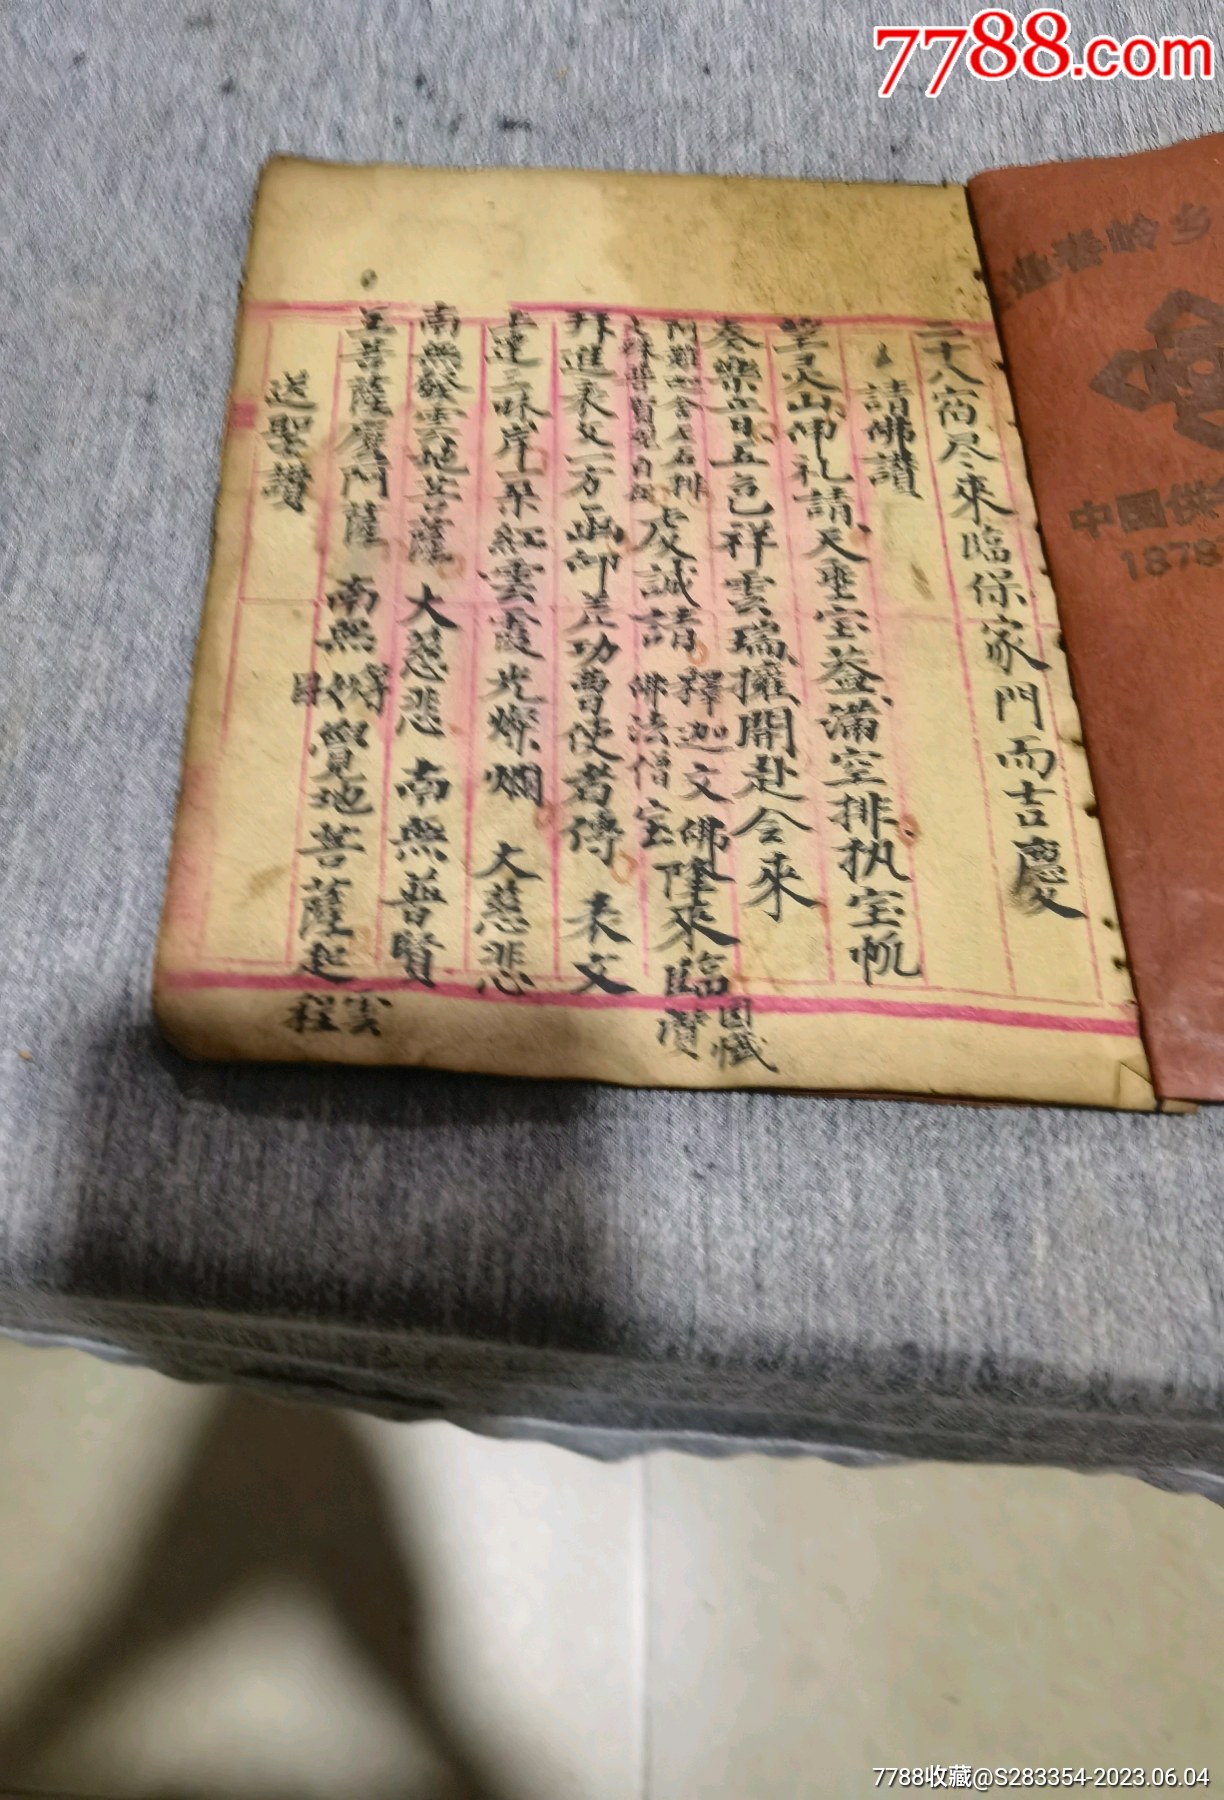 7788.com
岭乡
中国供
1878
二十八宿尽來臨保家門而吉慶
請佛讚
望灵山叩礼請天垂宝蓋满空排执宝帆
奏樂音五色祥雲瑞擁開赴会來
虔誠請
釋迦文佛
佛法僧宝
隆來臨
拜進表文一方函叩差功曹使者傳 表文
上達三味岸一朶紅雲霞光燦爛 大慈悲
南無發雲地菩薩 大慈悲 南無普賢
王菩薩摩 薩 南無 覺地菩薩起
雲程
送聖讚
7788收藏@S283354-2023.06.04